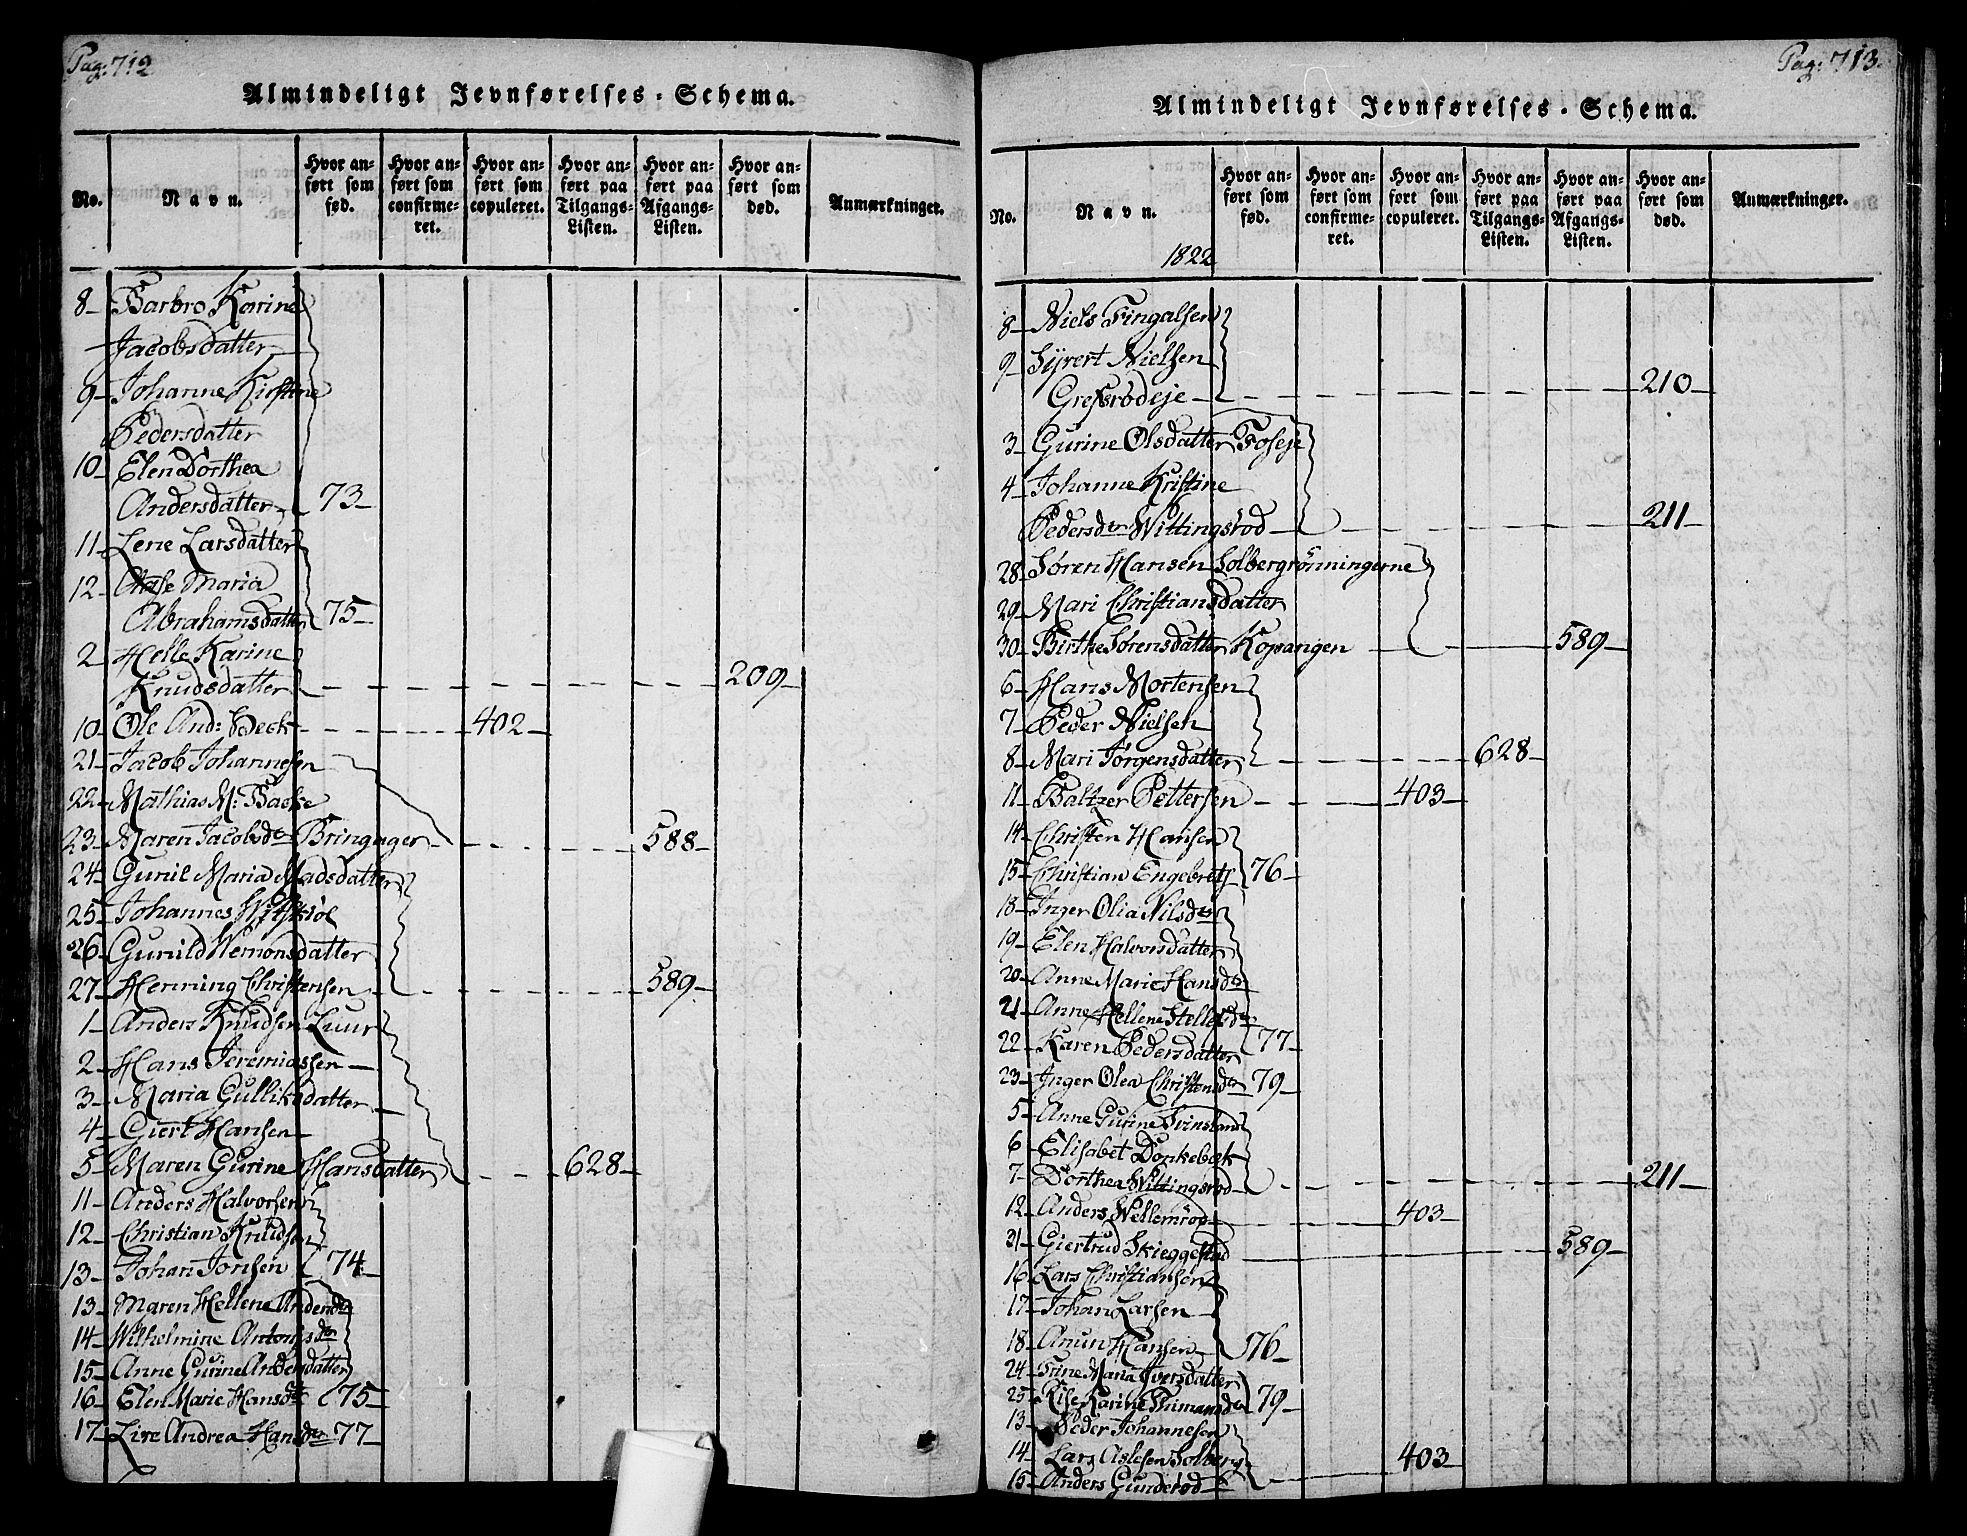 Pag: 712
Almindeligt Jevnførelses-Schema.
No.
Navn.
Hvor an-
ført som
fød.
Hvor an-
ført som
confirme-
ret.
Hvor an-
ført som
copuleret.
Hvor an-
ført paa
Tilgangs-
Listen.
Hvor an-
ført paa
Afgangs-
Listen.
Hvor an-
ført som
død.
Anmærkninger.
8 Barbro Karine
Jacobsdatter
9 Johanne Kirstine
Pedersdatter
10 Elen Dorthea
Andersdatter 73
11 Lene Larsdatter
12 Aase Maria
Abrahamsdatter 75
2 Helle Karine
Knudsdatter 209
10 Ole And: Beck 402
21 Jacob Johannesen
22 Mathias M: Backe
23 Maren Jacobsdr Bringager 588
24 Gunil Maria Madsdatter
25 Johannes
26 Gunild Wemonsdatter
27 Henning Christensen 589
1 Anders Knudsen Luur
2 Hans Jeremiassen
3 Maria Gulliksdatter
4 Giert Hansen
5 Maren Gurine Hansdatter 628
11 Anders Halvorsen
12 Christian Knudsen
13 Johan Jonsen 74
13 Maren Hellene Andersdr
14 Wilhelmine Antonsdr
15 Anne Gurine Andersdatter
16 Elen Marie Hansdr 75
17 Live Andrea Hansdr 77
Pag: 713
Almindeligt Jevnførelses-Schema.
No.
Navn.
Hvor an-
ført som
fød.
Hvor an-
ført som
confirme-
ret.
Hvor an-
ført som
copuleret.
Hvor an-
ført paa
Tilgangs-
Listen.
Hvor an-
ført paa
Afgangs-
Listen.
Hvor an-
ført som
død.
Anmærkninger.
1822
8 Niels Fingalsen
9 Syvert Nielsen
Gresrødeje 210
3 Gurine Olsdatter Foseje
4 Johanne Kristine
Pedersdtr Wittingsrød 211
28 Søren Hansen Solbergrønningerne
29 Mari Christiansdatter
30 Birthe Sørensdatter Kopangen 589
6 Hans Mortensen
7 Peder Nielsen
8 Mari Jørgensdatter 628
11 Baltzer Pettersen 403
14 Christen Hansen
15 Christian Engebrets 76
18 Inger Olia Nilsdtr
19 Elen Halvorsdatter
20 Anne Marie Hansdtr
21 Anne Hellene
22 Karen Pedersdatter 77
23 Inger Olea Christensdtr 79
5 Anne Gurine
6 Elisabet Donkebæk
7 Dorthea Wittingsrød 211
12 Anders Wellemrød 403
31 Giertrud Skieggestad 589
16 Lars Christiansen
17 Johan Larsen
18 Anun Hansen 76
24 Trine Maria Iversdatter
25 Else Karine 79
13 Peder Johannesen
14 Lars Aslesen Solberg 403
15 Anders Gunderød